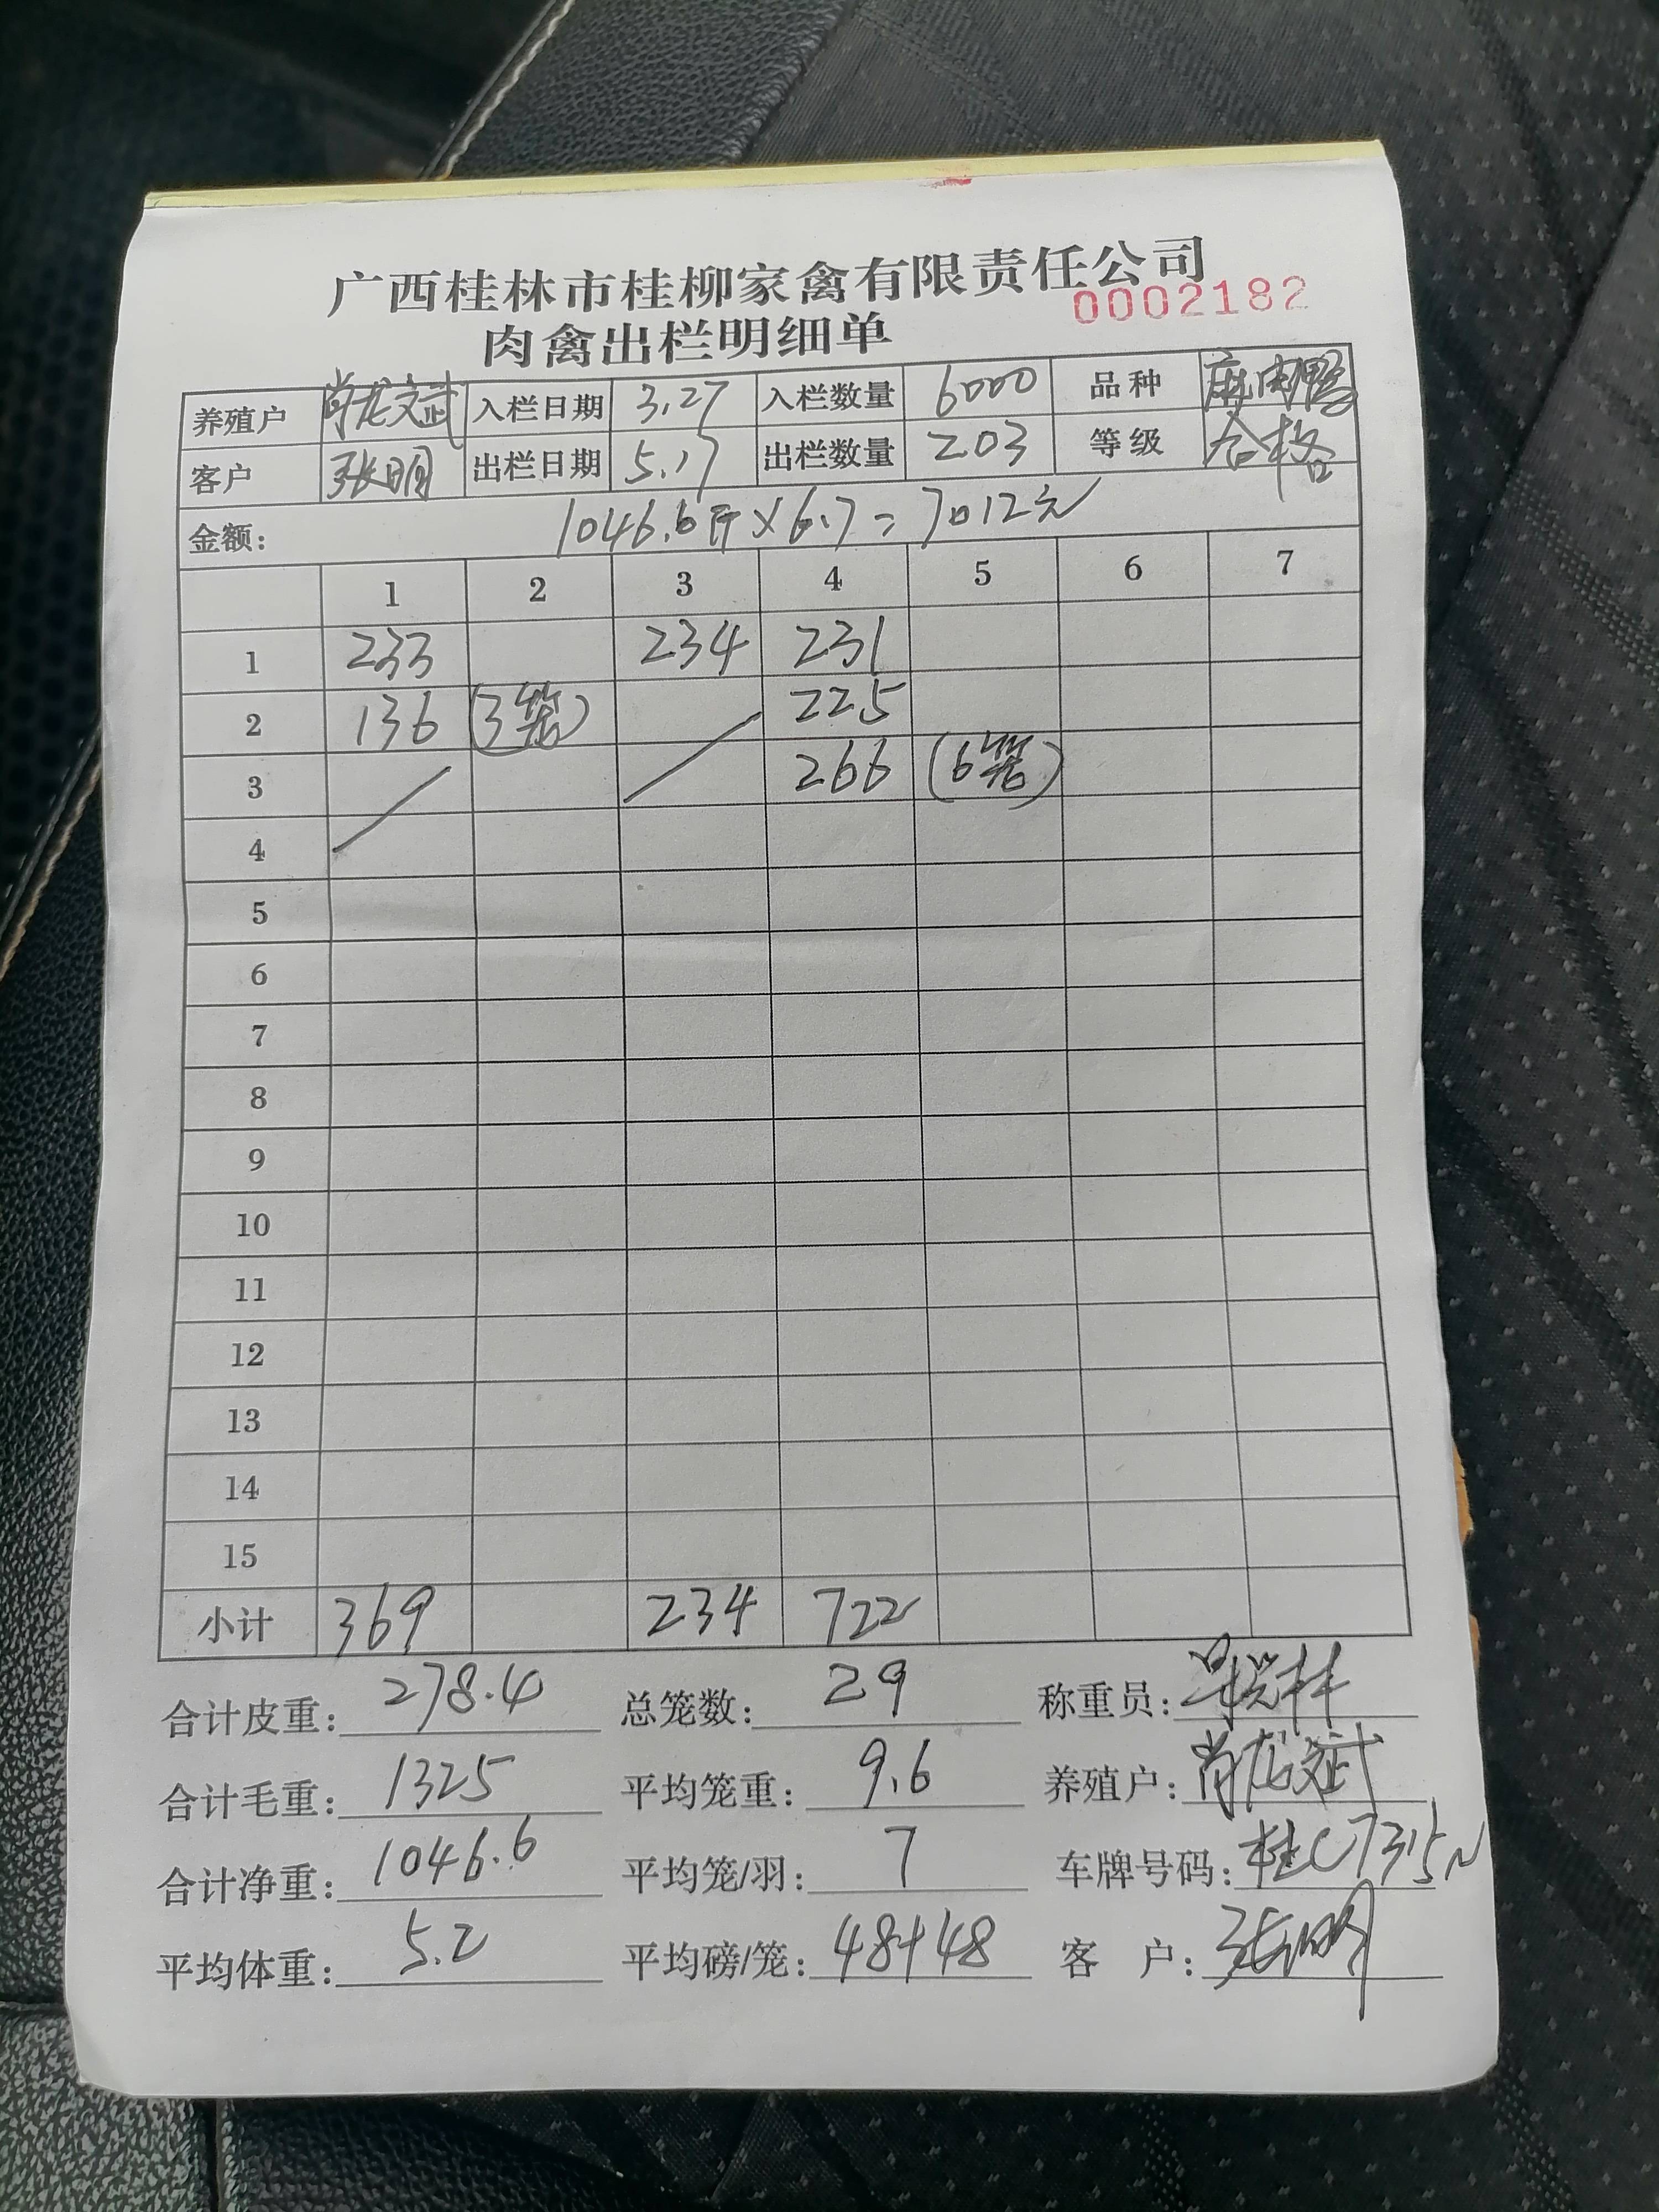 广西桂林市桂柳家禽有限责任公司
0002182
肉禽出栏明细单
养殖户 肖龙文武 入栏日期 3.27 入栏数量 6000 品种 麻肉鸭
客户 张明 出栏日期 5.17 出栏数量 203 等级 合格
金额： 1046.6斤×6.7=7012元
1 2 3 4 5 6 7
1 233 234 231
2 136 (3笼) 225
3 266 (6笼)
4
5
6
7
8
9
10
11
12
13
14
15
小计 369 234 722
合计皮重： 278.4 总笼数： 29 称重员：
合计毛重： 1325 平均笼重： 9.6 养殖户： 肖龙文武
合计净重： 1046.6 平均笼/羽： 7 车牌号码： 桂C7315N
平均体重： 5.2 平均磅/笼： 48+48 客 户： 张明